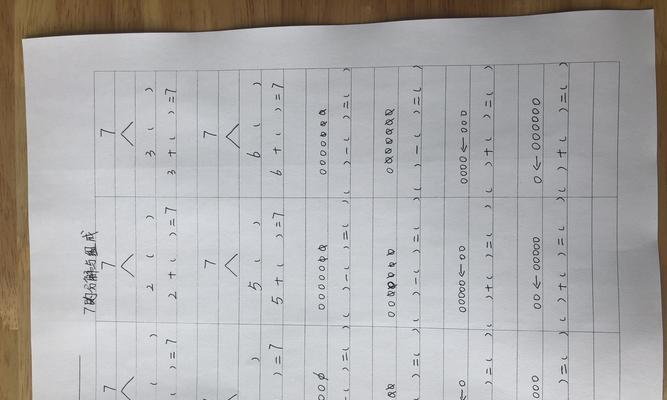 7的分解与组成
7 7 7
( ) 2 ( ) 3 ( )
( )=7 2+( )=7 3+( )=7
7 7
) 5 ( ) 6 ( )
)=7 5+( )=7 6+( )=7
-( )=( ) ( )-( )=( ) ( )-( )=( )
-( )=( ) ( )-( )=( ) ( )-( )=( )
←0 00000←00 0000←000
)=( ) ( )+( )=( ) ( )+( )=( )
000 00←00000 0←000000
)=( ) ( )+( )=( ) ( )+( )=( )